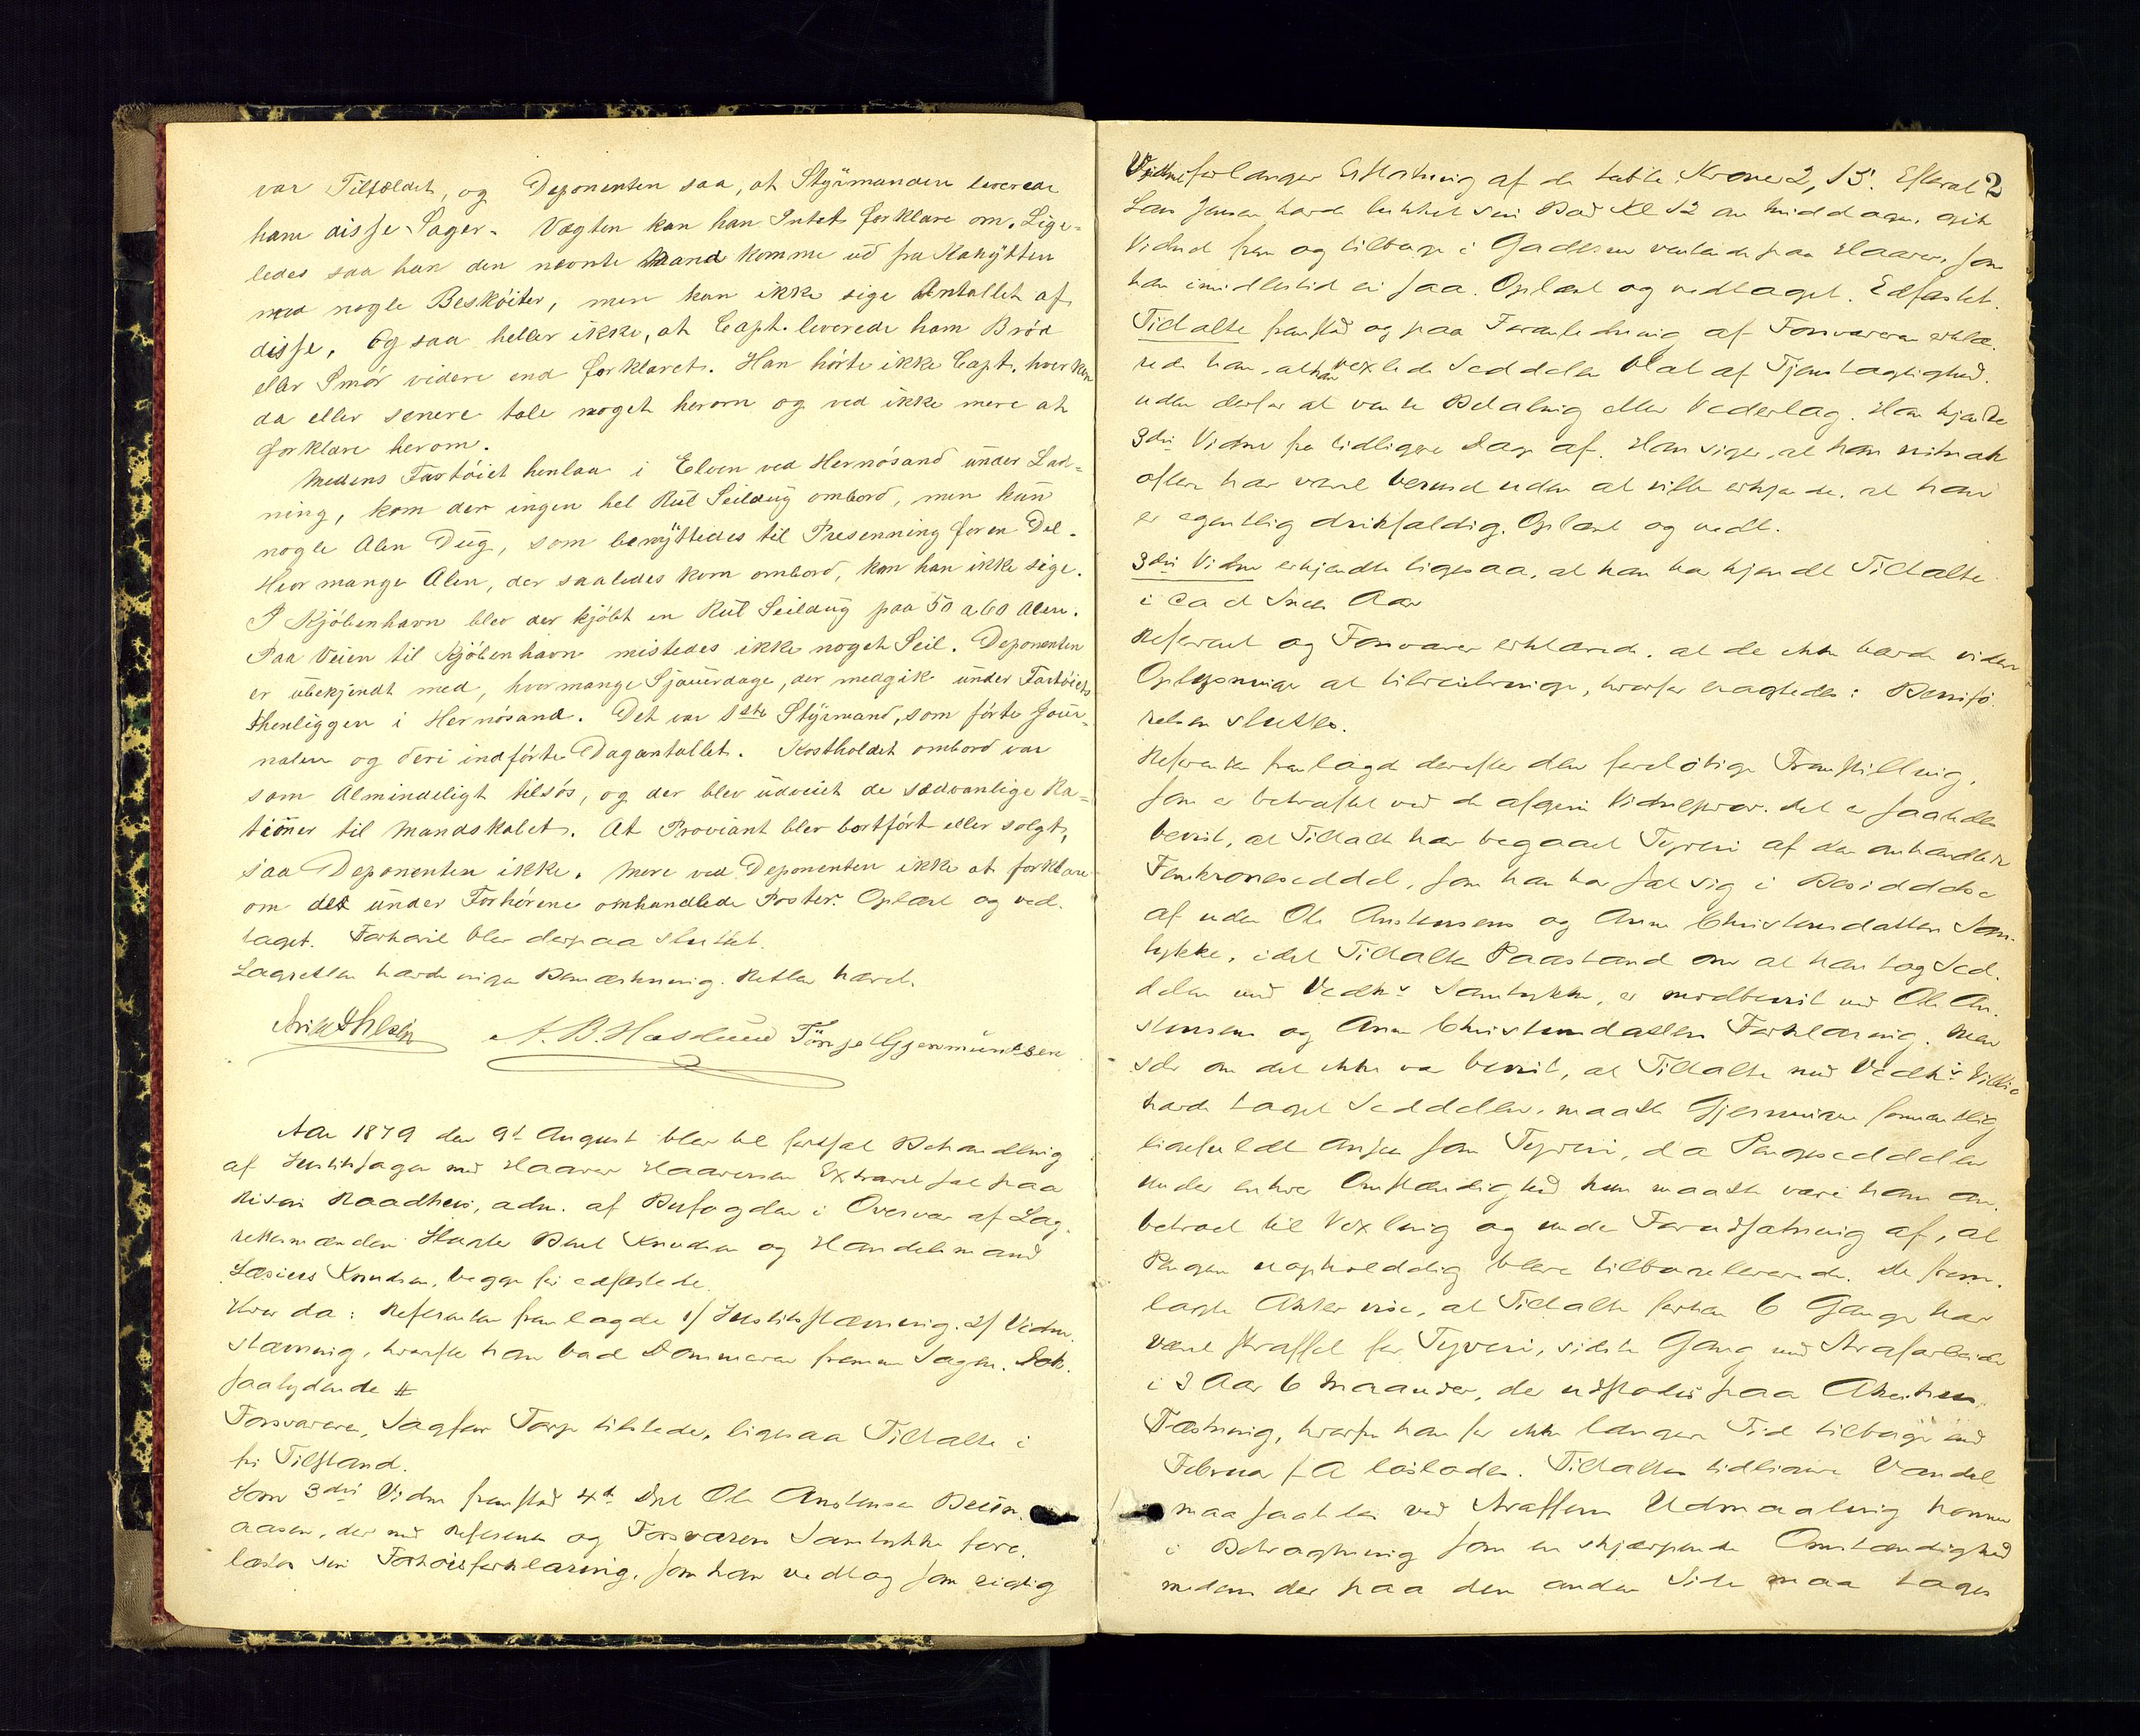 var Tilfældet, og Deponenten saa, at Styrmanden leverede
ham disse Sager. Vægten kan han Intet forklare om. Lige-
ledes saa han den nævnte Mand komme ud fra Kahytten
med nogle Beskøiter, men kan ikke sige Antallet af
disse. Og saa heller ikke, at Capt. leverede ham Brød
eller Smør videre end forklaret. Han hørte ikke Capt. hverken
da eller senere tale noget herom og ved ikke mere at
forklare herom.
Medens Fartøiet henlaa i Elven ved Hernøsand under Lad-
ning, kom der ingen hel Rul Seildug ombord, men kun
nogle Alen Dug, som benyttedes til Presenning for en Del.
Hvor mange Alen, der saaledes kom ombord, kan han ikke sige.
I Kjøbenhavn blev der kjøbt en Rul Seildug paa 50 a 60 Alen.
Paa Veien til Kjøbenhavn mistedes ikke noget Seil. Deponenten
er ubekjendt med, hvormange Sjauerdage, der medgik under Fartøiets
Henliggen i Hernøsand. Det var 1ste Styrmand, som førte Jour-
nalen og deri indførte Dagantallet. Kostholdet ombord var
som Almindeligt tilsøs, og der blev udveiet de sædvanlige Ra-
tioner til Mandskabet. At Proviant blev bortført eller solgt,
saa Deponenten ikke. Mere ved Deponenten ikke at forklare
om de under Forhørene omhandlede Poster. Oplæst og ved-
taget. Forhøret blev derpaa sluttet.
Lagretten havde ingen Bemærkning. Retten hævet.
A. B. Haslund Tønjo Gjermundsen
Aar 1879 den 9d August blev til fortsat Behandling
af Justitssagen mod Haaver Haaversen Extraret sat paa
Risør Raadhus, adm. af Byfogden i Overvær af Lag-
rettemændene Slagter Knudsen og Handelsmand
Knudsen, begge før edfæstede.
Hvor da: Referenten fremlagde 1/ Justitsstævning. 2/ Vidne-
stævning, hvorefter han bad Dommeren fremme Sagen. Dok.
saalydende #
Forsvareren, Sagfører Torp tilstede, ligesaa Tiltalte i
fri Tilstand.
Som 3die Vidne fremstod 4d Dep Ole Anstensen
aasen, der med Referenten og Forsvarerens Samtykke fore-
læstes sin Forhørsforklaring, som han vedtog som rigtig
2
Vidnet forlanger Erstatning af de tabte Kroner 2,15. Efterat
Lars Jensen havde lukket sin Bod Kl 12 om Middagen, gik
Vidnet frem og tilbage i Gaderne ventende paa Haaver, som
han imidlertid ei saa. Oplæst og vedtaget. Edfæstet.
Tiltalte fremstod og paa Foranledning af Forsvareren erklæ-
rede han, at han vexlede Seddelen blot af Tjenstagtighed
uden derfor at vente Betaling eller Vederlag. Han kjendte
3die Vidne fra tidligere Dage af. Han siger, at han
ofte har været beruset uden at ville erkjende, at han
er egentlig drikfældig. Oplæst og vedt.
3die Vidne erkjendte ligesaa, at han har kjendt Tiltalte
i Aar
Referent og Forsvarer erklærede, at de ikke havde videre
Oplysninger at tilveiebringe, hvorfor eragtedes: Bevisfø-
relsen sluttes.
Referenten fremlagde derefter den foreløbige Fremstilling,
som er bekræftet ved de afgivne Vidneprov. Det er saaledes
bevist, at Tiltalte har begaaet Tyveri af den omhandlede
Femkroneseddel, som han har sat sig i Besiddelse
af uden Ole Anstensens og Anne Christensdatters Sam-
tykke, idet Tiltaltes Paastand om at han tog Sed-
delen med Vedks Samtykke, er modbevist med Ole An-
stensens og Anne Christensdatters Forklaring. Men
selv om det ikke var bevist, at Tiltalte mod Vedks Villie
havde taget Seddelen, maatte Gjerningen formentlig
ligefuldt ansees som Tyveri, da Pengeseddelen
under enhver Omstændighed kun maatte være ham an-
betroet til Vexling og under Forudsætning af, at
Pengene uopholdelig bleve tilbageleverede. De frem-
lagte Akter vise, at Tiltalte forhen 6 Gange har
været straffet for Tyveri, sidste Gang med Strafarbeide
i 3 Aar 6 Maaneder, der udstodes paa Akershus
Fæstning, hvorfra han for ikke længere Tid tilbage end
Februar f A løslodes. Tiltaltes tidligere Vandel
maa saaledes ved Straffens Udmaaling komme
i Betragtning som en skjærpende Omstændighed
medens der paa den anden Side maa tages